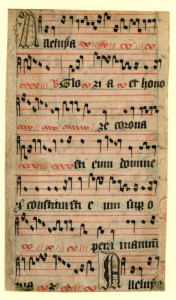 Alleluya
V Glo ri a et hono
re corona
sti eum domine
et constituisti e um sup o
pera manuum
A lleluy